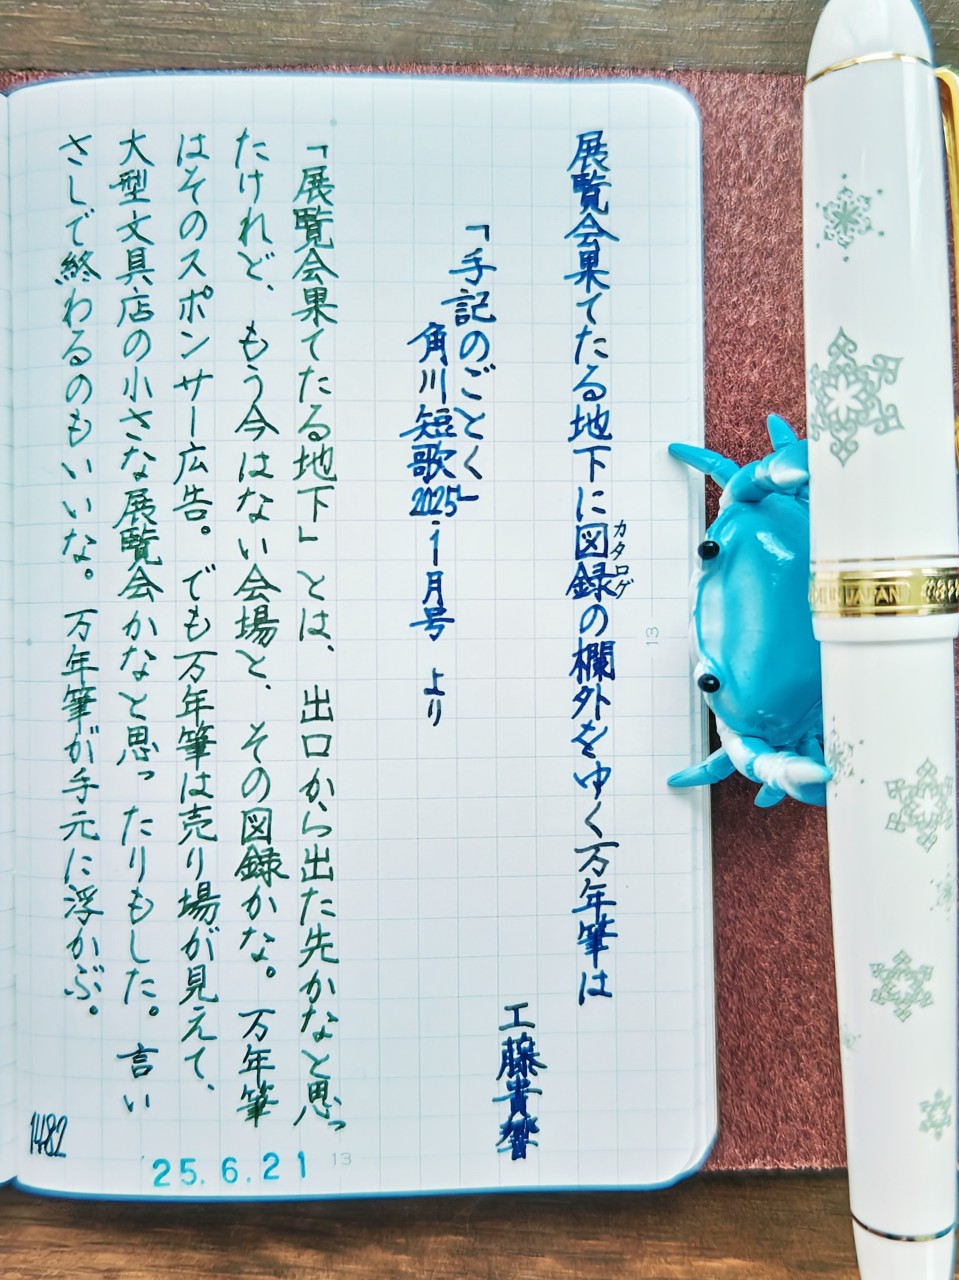 展覧会果てたる地下に図録の欄外をゆく万年筆は
カタログ
工藤貴響
「手記のごとく」
角川短歌2025.1月号 より
「展覧会果てたる地下」とは、出口から出た先かなと思っ
たけれど、もう今はない会場と、その図録かな。万年筆
はそのスポンサー広告。でも万年筆は売り場が見えて、
大型文具店の小さな展覧会かなと思ったりもした。言い
さしで終わるのもいいな。万年筆が手元に浮かぶ。
1482
25.6.21
13
13
JAPAN